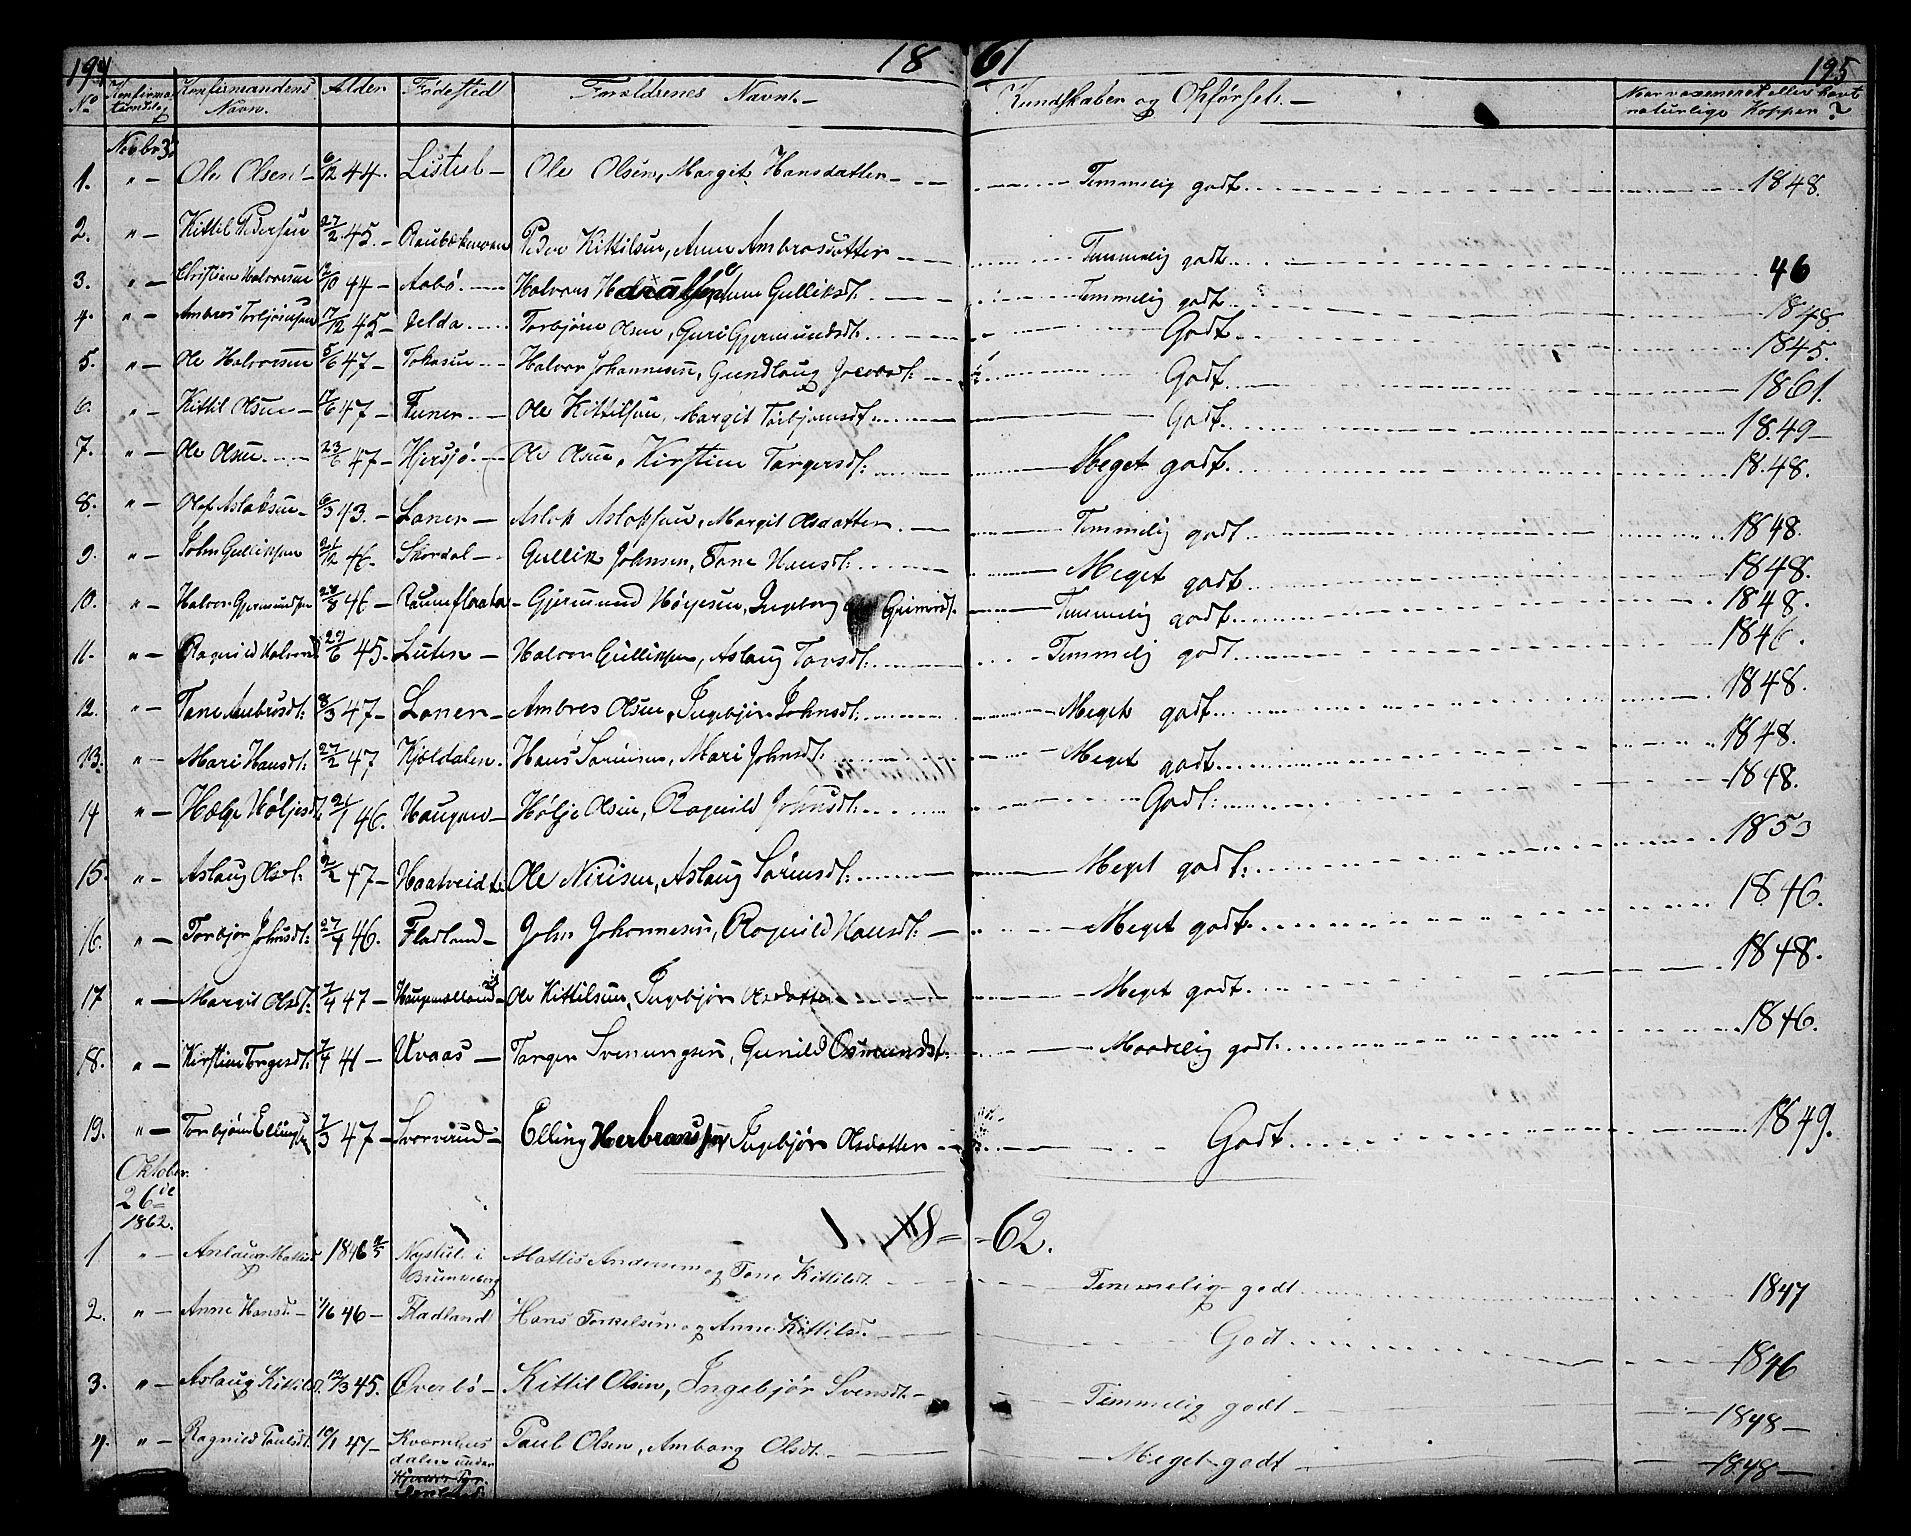 194 18 61 195
No Konfirmationsdag Konfirmandens Navn. Alder Fødested Forældrenes Navne.- Kundskaber og Opførsel.- Naar vaxeneret eller havt naturlige Kopper?
Novbr 3
1. " - Ole Olsen - 6/12 44. Listul - Ole Olsen, Margit Hansdatter - Temmelig godt 1848.
2. " - Kittil Pedersen 27/2 45. - Peder Kittilsen, Anne Ambrosdatter - Temmelig godt 46
3. " - Christian Halvorsen 12/10 44 - Aabø. Halvor Gulliksdt. Temmelig godt 1848
4. " - Ambros Torbjørnsen 17/12 45 - Jelda Torbjørn Olsen, Guri Gjermundsdt. Godt 1845.
5. " - Ole Halvorsen 5/6 47 - Tokasen Halvor Johannesen, Gundlaug Jacobsdt. Godt 1861.
6. " - Kittil Olsen - 17/6 47 - Funer - Ole Kittilsen, Margit Torbjørnsdt. Godt 1849 -
7. " - Ole Olsen 23/6 47 - Hjersjø. Ole Olsen, Kirstine Targersdt. Meget godt 1848.
8. " - Olaf Aslaksen - 6/3 43. - Loner - Aslak Aslaksen, Margit Olsdatter. Temmelig godt 1848.
9. " - John Gulliksen 21/12 46. Skordal - Gullik Johnsen, Tone Hansdt. Meget godt 1848.
10. " - Halvor Gjermundsen 28/8 46 - Raunefloata - Gjermund Høljesen, Ingeborg Grimsdt. Temmelig godt 1848.
11. " - Ragnild Halvorsd 29/6 45. Luten - Halvor Gulliksen, Aslaug Torsdt. Temmelig godt 1846.
12. " - Tone Ambrosdt. 8/3 47 - Loner - Ambros Olsen, Ingebjør Johnsdt. Meget godt 1848.
13. " - Mari Hansdt. 27/2 47 Kjeldalen. Hans Sørensen, Mari Johnsdt. Meget godt 1848.
14 " - Hælge Høljesd. 21/1 46. Haugen - Hølje Olsen, Ragnild Johnsdt. Godt. 1848.
15. " - Aslaug Olsdt. 2/2 47 - Haatveidt. Ole Nirisen, Aslaug Sørensdt. Meget godt. 1853
16. " - Torbjør Johnsdt. 27/7 46. Fladland - John Johannesen, Ragnild Hansdt. - Meget godt. 1846.
17 " - Margit Olsdt. 7/4 47 - Ole Kittilsen, Ingebjør Olsdatter Meget godt. 1848.
18. " - Kirstine Torgersdt. 7/4 41 - Uvaas - Targer Svenungsen, Gunild Osmundsdt. Maadelig godt. 1846.
19. " - Torbjørn Ellingsen 7/3 47 - Svorverud - Elling Herbransen, Ingebjør Olsdatter Godt 1849.
Oktober
26de
1862. 18 - 62.
1 " - Anlaug Mattisd 1846 2/5 Nystul i Brunkeberg Mattis Andersen og Tone Kittilsdt. Temmelig godt 1847
2. " - Anne Hansd. - 1/6 46 - Fladland Hans Torkelsen og Anne Kittilsd. Godt 1846
3. " - Aslaug Kittilsd. 12/3 45. Øverbø - Kittil Olsen, Ingebjør Svensdt. - Temmelig godt - 1848 -
4. " - Ragnild Paulsdt. 10/1 47 - Kvernhusdalen under Paul Olsen, Amborg Olsdt. - Meget godt - 1848 -